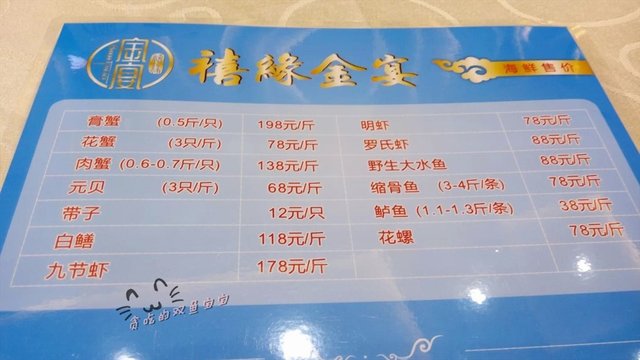 金宴
禧缘金宴
海鲜售价
膏蟹 (0.5斤/只) 198元/斤 明虾 78元/斤
花蟹 (3只/斤) 78元/斤 罗氏虾 88元/斤
肉蟹 (0.6-0.7斤/只) 138元/斤 野生大水鱼 88元/斤
元贝 (3只/斤) 68元/斤 缩骨鱼 (3-4斤/条) 78元/斤
带子 12元/只 鲈鱼 (1.1-1.3斤/条) 38元/斤
白鳝 118元/斤 花螺 78元/斤
九节虾 178元/斤
贪吃的双鱼宝宝